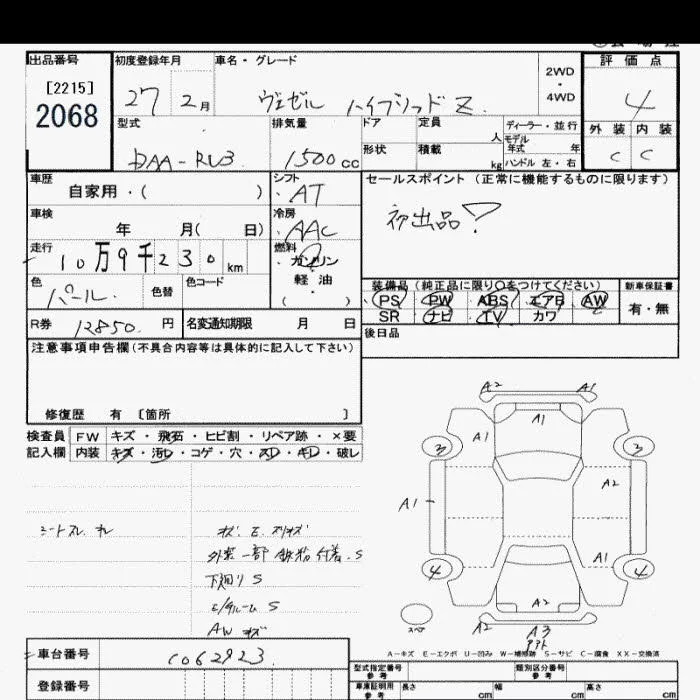 出品番号
[2215]
2068
初度登録年月
27 2月
車名・グレード
ヴェゼル ハイブリッド Z
2WD
・
4WD
評価点
4
外装 内装
C C
型式
DAA-RU3
排気量
1500cc
ドア
形状
定員
人
積載
kg
ディーラー・並行
モデル
年式 年
ハンドル 左・右
車歴
自家用・( )
シフト
・AT
車検
年 月( 日)
冷房
・AAC
走行
10万9千230km
燃料
ガソリン
・
軽油
( )
セールスポイント (正常に機能するものに限ります)
初出品
色
パール
色替
色コード
装備品 (純正品に限り○をつけてください)
PS PW ABS エアB AW
SR ナビ TV カワ
新車保証書
有・無
R券 12850 円
名変通知期限 月 日
後日品
注意事項申告欄(不具合内容等は具体的に記入して下さい)
修復歴 有 〔箇所 〕
検査員
記入欄
FW キズ・飛石・ヒビ割・リペア跡・×要
内装 キズ・汚レ・コゲ・穴・スレ・キレ・破レ
シートスレ
外装一部鉄粉付着.S
下廻り S
AW キズ
A2 A1
A1
A1
3 3
A2
A1
A1
4 4
A2
スペア
A2 A3
A-キズ E-エクボ U-凹み W-補修跡 S-サビ C-腐食 XX-交換済
車台番号
1062923
登録番号
型式指定番号
参考
類別区分番号
参考
車庫証明用
参考
長さ cm
幅 cm
高さ cm